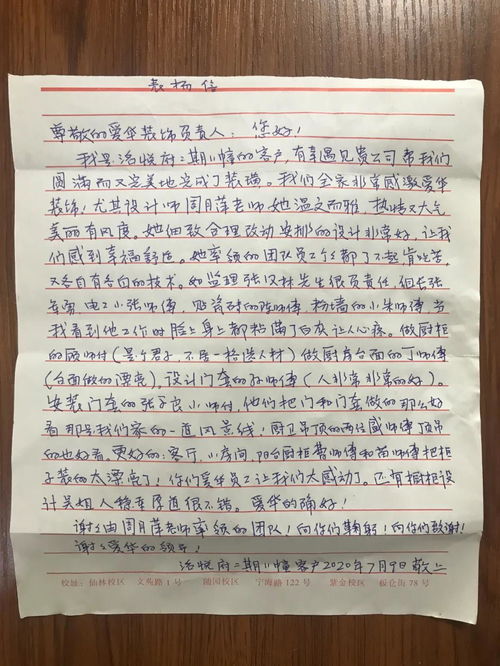 表扬信
尊敬的爱华装饰负责人：您好！
我是洺悦府二期11幢的客户，有幸遇见贵公司帮我们
圆满而又完美地完成了装璜。我们全家非常感激爱华
装饰，尤其设计师周月萍老师她温文而雅，热情又大气
美丽有风度。她细致合理改动安排的设计非常好，让我
们感到幸福舒适。她率领的团队员工个个都了不起，肯吃苦，
又各自有各自的技术。如监理张汉林先生很负责任，但长张
车勇，电工小张师傅，贴瓷砖的陈师傅，粉墙的小朱师傅，当
我看到他工作时脸上身上都粘满了白灰让人心疼。做厨柜
的顾师付（是个君子，不是一般人材）做厨房台面的丁师傅
（台面做的漂亮），设计门套的孙师傅（人非常非常的好）。
安装门套的张子良小师付，他们把门和门套做的那么好
看那是我们家的一道风景线！厨卫吊顶的两位盛师傅顶吊
的也好看。更好的：客厅，小房间，阳台厨柜费师傅和苗师傅把柜
子装的太漂亮了！你们爱华员工让我们太感动了。还有橱柜设
计吴姐人稳重厚道很不错。爱华的确好！
谢谢由周月萍老师率领的团队！向你们鞠躬！向你们致谢！
谢谢爱华的领导！
洺悦府二期11幢客户2020年7月9日敬上
校址：仙林校区 文苑路1号 随园校区 宁海路122号 紫金校区 板仓街78号